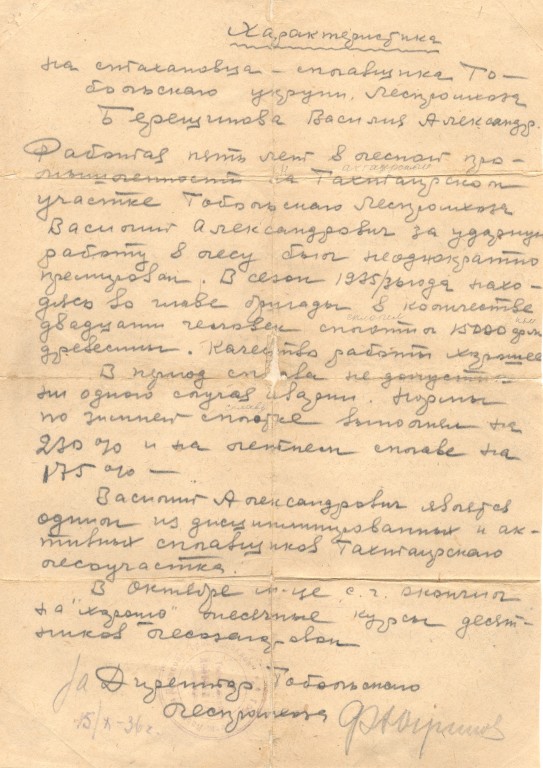 Характеристика
на стахановца – сплавщика То-
больского укрупн. Леспромхоза
Берещинова Василия Александр.
Работая пять лет в лесной про-
мышленности на Тахтаирском
участке Тобольского Леспромхоза
Василий Александрович за ударную
работу в лесу был неоднократно
премирован. В сезон 1935/36 года нахо-
дясь во главе бригады в количестве
двадцати человек сплотил 15000 ф/м
древесины. Качество работы хорошее
В период сплава не допустил
ни одного случая аварии. Нормы
по зимней сплотке выполнял на
230% и на летнем сплаве на
175% –
Василий Александрович является
одним из дисциплинированных и ак-
тивных сплавщиков Тахтаирского
лесоучастка.
В Октябре м-це с.г. окончил
на "хорошо" месячные курсы десят-
ников лесозаготовок
За Директор Тобольского
Леспромхоза
15/X-36 г.